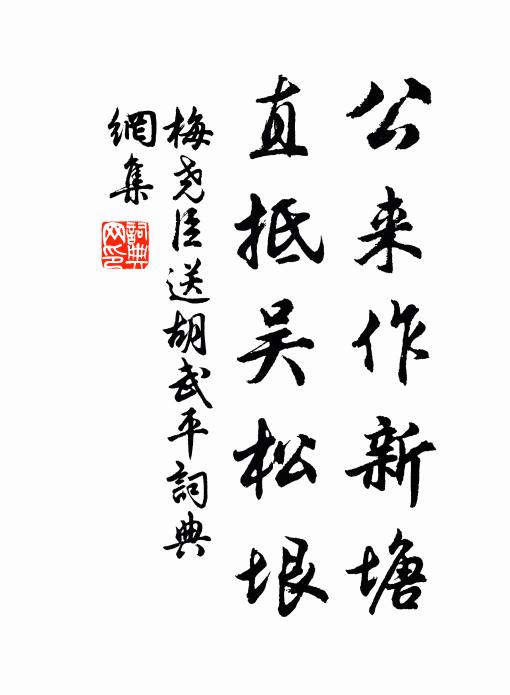 公来作新塘
直抵吴松垠
梅尧臣送胡武平詞典
網集
詞典
网印